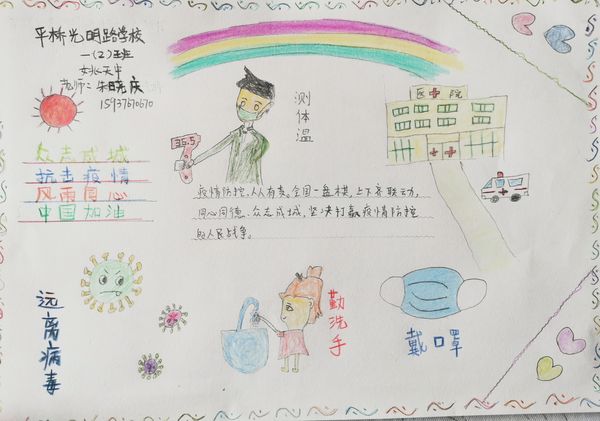 平桥光明路学校
一(2)班
老师：朱晓庆
15937610670
众志成城
抗击疫情
风雨同心
中国加油
36.5
测体温
医院
疫情防控,人人有责。全国一盘棋,上下齐联动,
同心同德、众志成城,坚决打赢疫情防控
的人民战争。
远离病毒
勤洗手
戴口罩